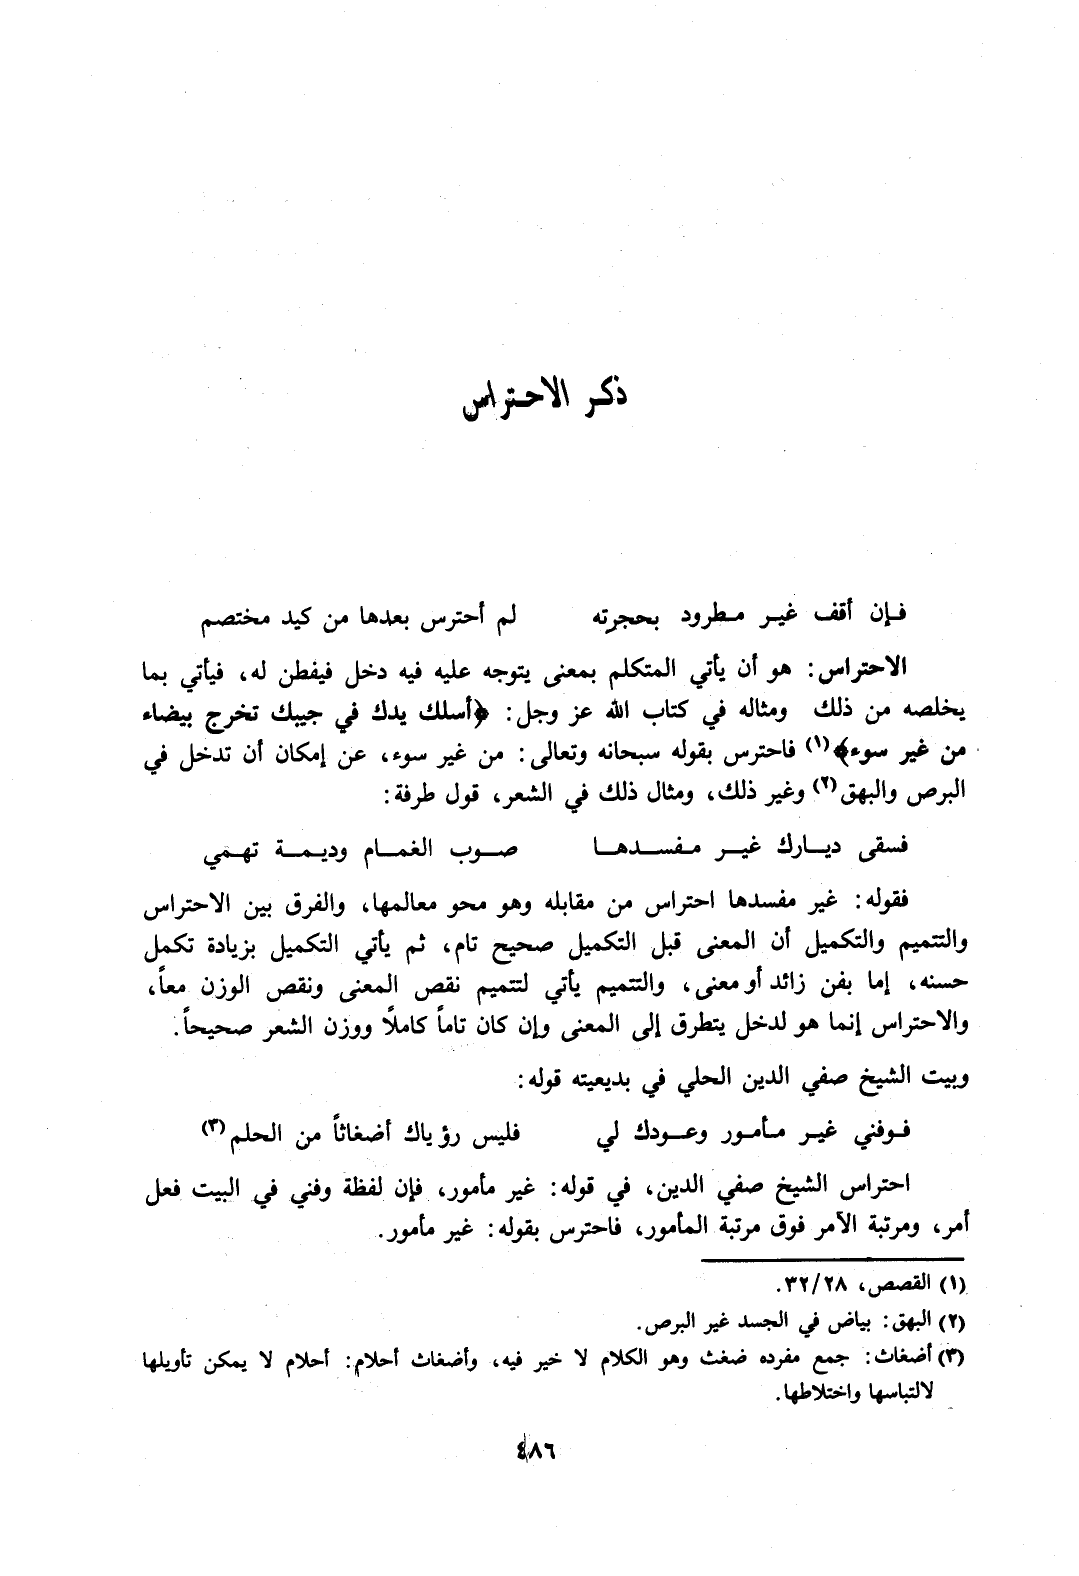 ذكر الاحتراس
فإن أقف غير مطرود بحجرته لم أحترس بعدها من كيد مختصم
الاحتراس: هو أن يأتي المتكلم بمعنى يتوجه عليه فيه دخل فيفطن له، فيأتي بما
يخلصه من ذلك ومثاله في كتاب الله عز وجل: ﴿أسلك يدك في جيبك تخرج بيضاء
من غير سوء﴾(١) فاحترس بقوله سبحانه وتعالى: من غير سوء، عن إمكان أن تدخل في
البرص والبهق(٢) وغير ذلك، ومثال ذلك في الشعر، قول طرفة:
فسقى ديارك غير مفسدها صوب الغمام وديمة تهمي
فقوله: غير مفسدها احتراس من مقابله وهو محو معالمها، والفرق بين الاحتراس
والتتميم والتكميل أن المعنى قبل التكميل صحيح تام، ثم يأتي التكميل بزيادة تكمل
حسنه، إما بفن زائد أو معنى، والتتميم يأتي لتتميم نقص المعنى ونقص الوزن معاً،
والاحتراس إنما هو لدخل يتطرق إلى المعنى وإن كان تاماً كاملاً ووزن الشعر صحيحاً.
وبيت الشيخ صفي الدين الحلي في بديعيته قوله:
فوفني غير مأمور وعودك لي فليس رؤياك أضغاثاً من الحلم(٣)
احتراس الشيخ صفي الدين، في قوله: غير مأمور، فإن لفظة وفني في البيت فعل
أمر، ومرتبة الآمر فوق مرتبة المأمور، فاحترس بقوله: غير مأمور.
(١) القصص، ٣٢/٢٨.
(٢) البهق: بياض في الجسد غير البرص.
(٣) أضغاث: جمع مفرده ضغث وهو الكلام لا خير فيه، وأضغاث أحلام: أحلام لا يمكن تأويلها
لالتباسها واختلاطها.
٤٨٦